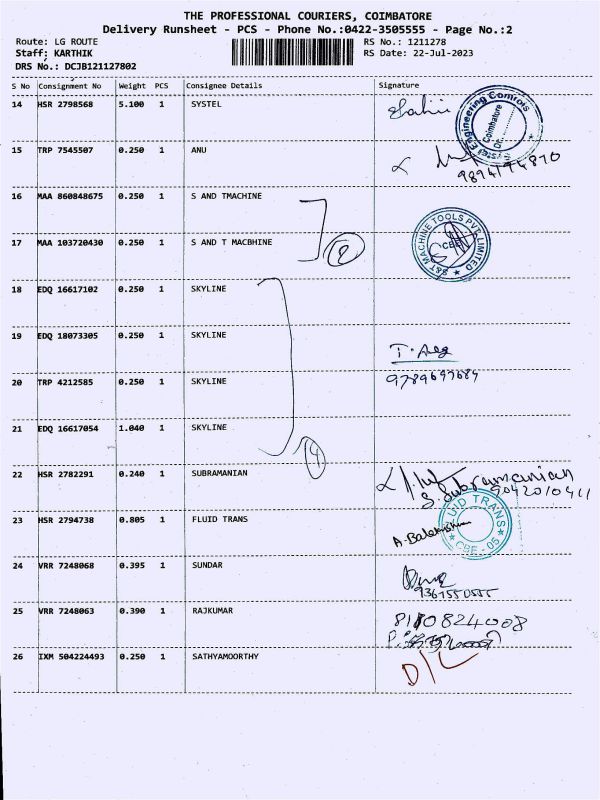 THE PROFESSIONAL COURIERS, COIMBATORE
Delivery Runsheet - PCS - Phone No.:0422-3505555 - Page No.:2
Route: LG ROUTE RS No.: 1211278
Staff: KARTHIK RS Date: 22-Jul-2023
DRS No.: DCJB121127802
S No Consignment No Weight PCS Consignee Details Signature
14 HSR 2798568 5.100 1 SYSTEL
Engineering Controls
Coimbatore
15 TRP 7545507 0.250 1 ANU
16 MAA 860848675 0.250 1 S AND TMACHINE
S&T MACHINE TOOLS PVT. LIMITED
CBE
17 MAA 103720430 0.250 1 S AND T MACBHINE
18 EDQ 16617102 0.250 1 SKYLINE
19 EDQ 18073305 0.250 1 SKYLINE
20 TRP 4212585 0.250 1 SKYLINE
21 EDQ 16617054 1.040 1 SKYLINE
4
22 HSR 2782291 0.240 1 SUBRAMANIAN
S. Subramanian
9042010411
23 HSR 2794738 0.805 1 FLUID TRANS
UID TRANS
CBE - 05
24 VRR 7248068 0.395 1 SUNDAR
25 VRR 7248063 0.390 1 RAJKUMAR
8110824008
26 IXM 504224493 0.250 1 SATHYAMOORTHY
D/L